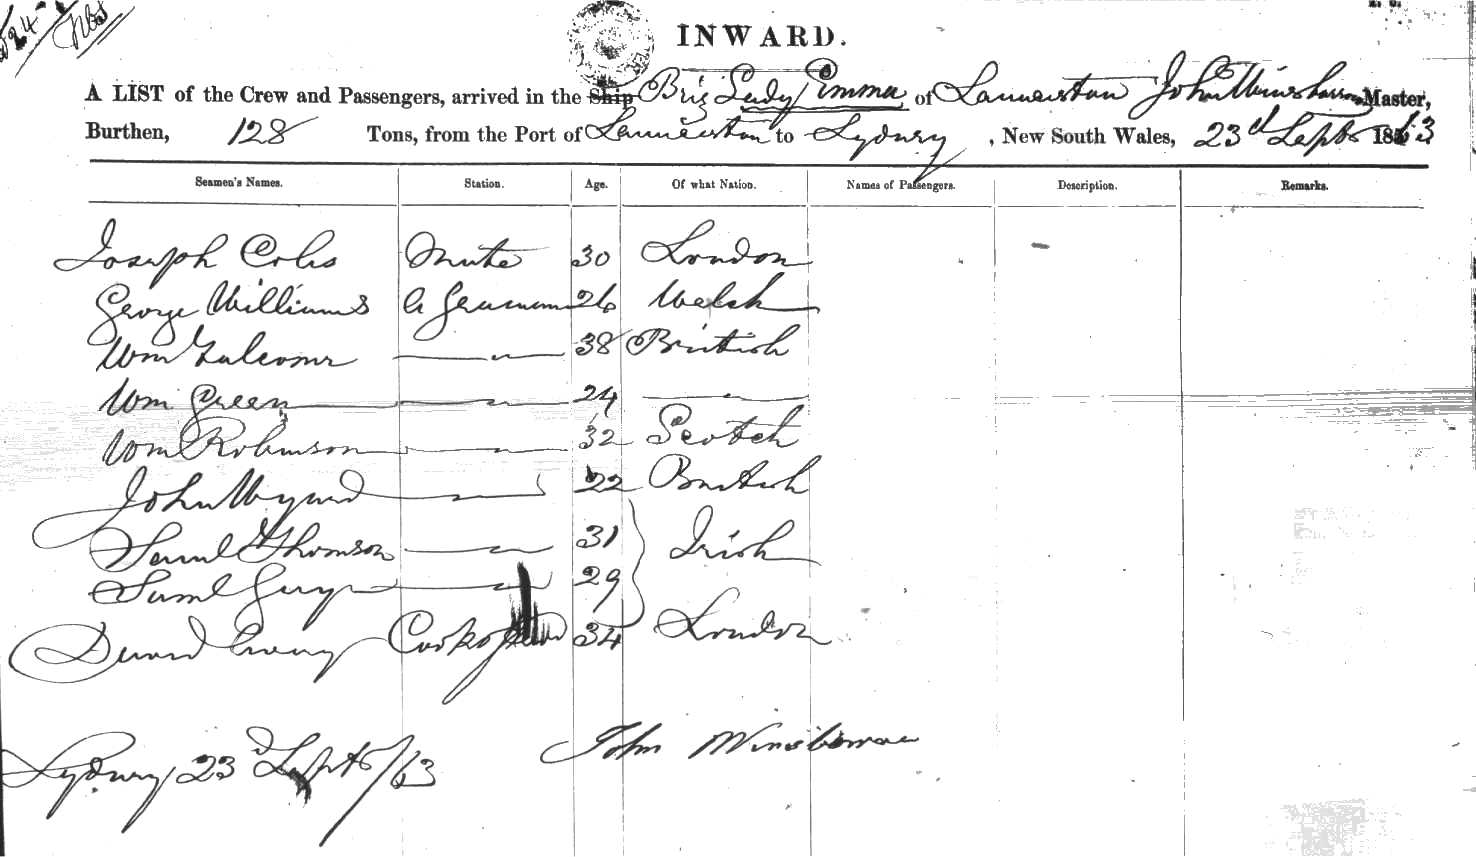 INWARD.
A LIST of the Crew and Passengers, arrived in the Ship Brig Lady Emma of Launceston John Master,
Burthen, 128 Tons, from the Port of Launceston to Sydney, New South Wales, 23d Septr 1863
Seamen's Names. Station. Age. Of what Nation. Names of Passengers. Description. Remarks.
Joseph Coles Mate 30 London
George Williams A Seaman 26 Welsh
Wm 38 British
Wm Green 24
Wm Robinson 32 Scotch
John 22 British
Saml Thomson 31 Irish
Saml 29
David Cook 34 London
Sydney 23d Septr /63 John